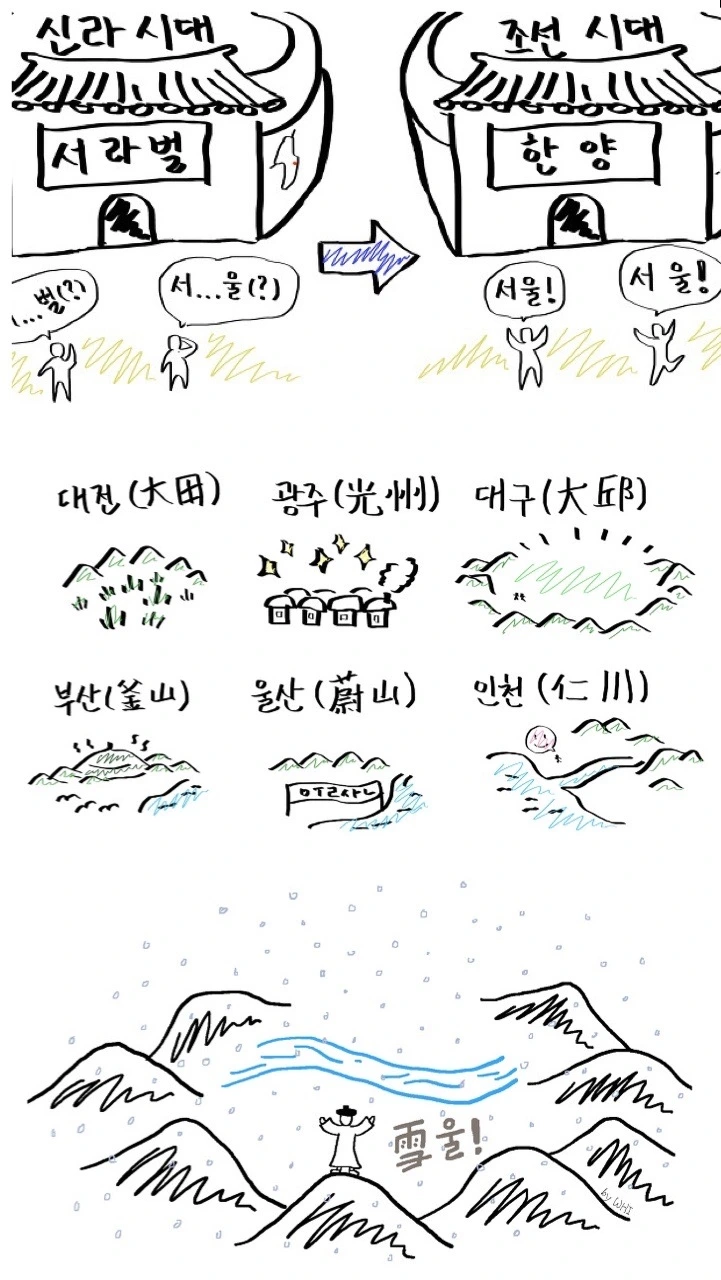 신라 시대
조선 시대
서라벌
한양
(...벌(?)
서...울(?)
서울!
서 울!
대전(大田)
광주(光州)
대구(大邱)
부산(釜山)
울산(蔚山)
인천(仁川)
雪울!
by WHI